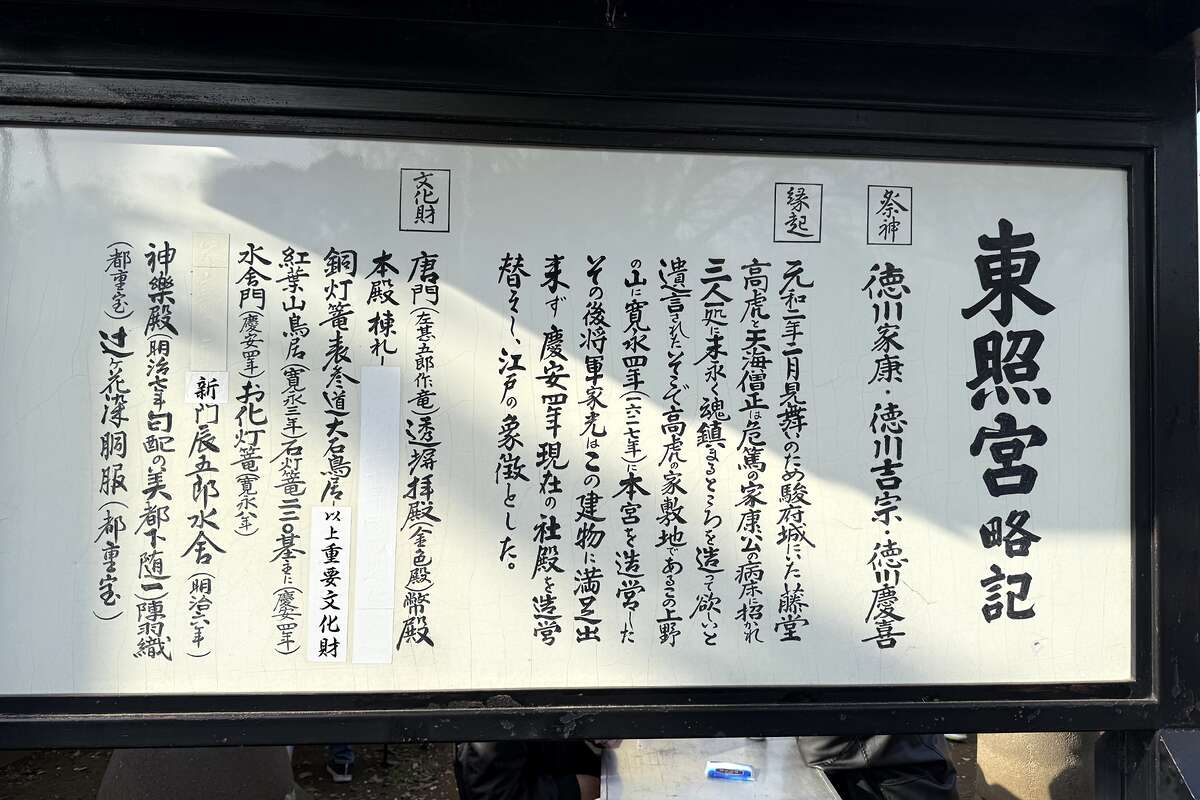 東照宮略記
祭神
徳川家康・徳川吉宗・徳川慶喜
縁起
元和二年二月見舞いのため駿府城にいた藤堂
高虎と天海僧正は危篤の家康公の病床に招かれ
三人一処に末永く魂鎮まるところを造って欲しいと
遺言されたそこで高虎の家敷地であるこの上野
の山に寛永四年(一六二七年)に本宮を造営した
その後将軍家光はこの建物に満足出
来ず慶安四年現在の社殿を造営
替えし、江戸の象徴とした。
文化財
唐門(左甚五郎作竜)透塀拝殿(金色殿)幣殿
本殿棟札
銅灯篭表参道大石鳥居以上重要文化財
紅葉山鳥居(寛永三年)石灯篭二二〇基主に(慶安四年)
水舎門(慶安四年)お化灯篭(寛永八年)
新門辰五郎水舎(明治六年)
神樂殿(明治七年勾配の美都下随一)陣羽織
(都重宝)辻ヶ花染胴服(都重宝)